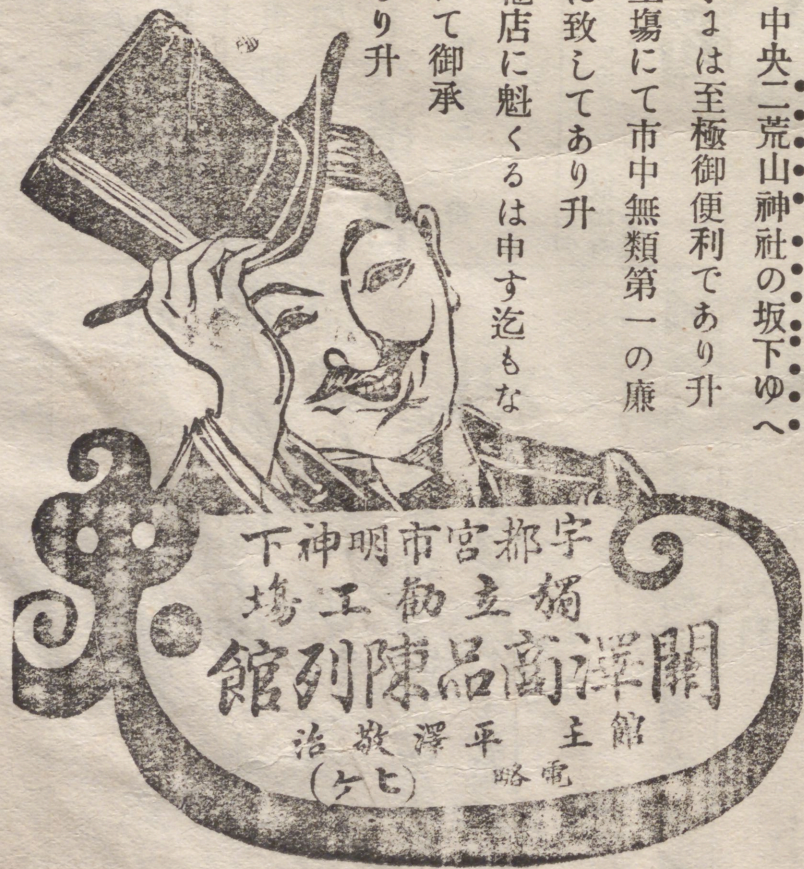 中央二荒山神社の坂下ゆへ
は至極御便利であり升
塲にて市中無類第一の廉
に致してあり升
店に魁くるは申す迄もな
て御承
り升
宇都宮市明神下
獨立勧工塲
關澤商品陳列館
館主 平澤敬治
電略(ヒケ)